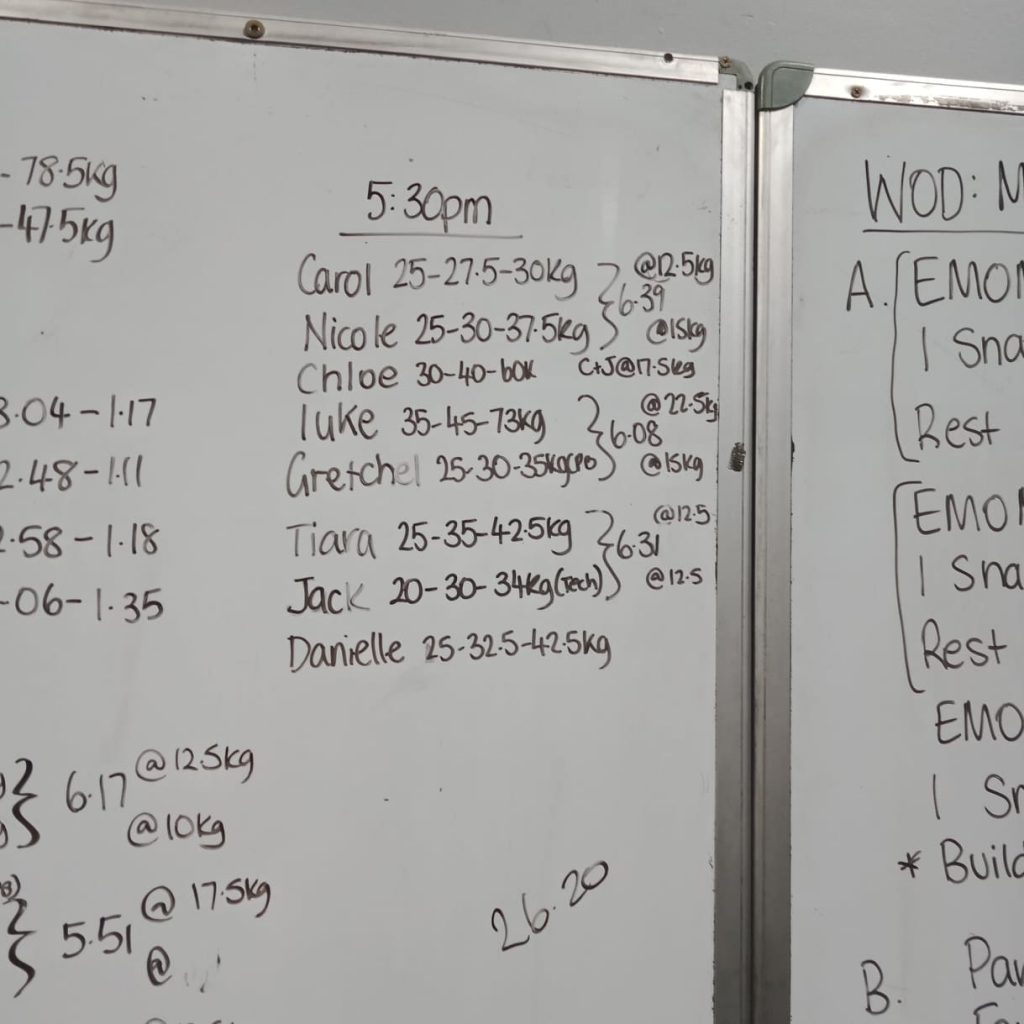 - 78.5kg
- 47.5kg
3.04 - 1.17
2.48 - 1.11
2.58 - 1.18
-06 - 1.35
6.17 @12.5kg
@10kg
5.51 @ 17.5kg
@
5:30pm
Carol 25-27.5-30kg } 6.39 @12.5kg
Nicole 25-30-37.5kg @15kg
Chloe 30-40-60K C+J@17.5kg
luke 35-45-73kg } 6.08 @22.5kg
Gretchel 25-30-35kg(PB) @15kg
Tiara 25-35-42.5kg } 6.31 @12.5
Jack 20-30-34kg(Tech) @12.5
Danielle 25-32.5-42.5kg
26.20
WOD: M
A. EMOM
1 Sna
Rest
EMOM
1 Sna
Rest
EMO
1 Sn
* Build
B. Par